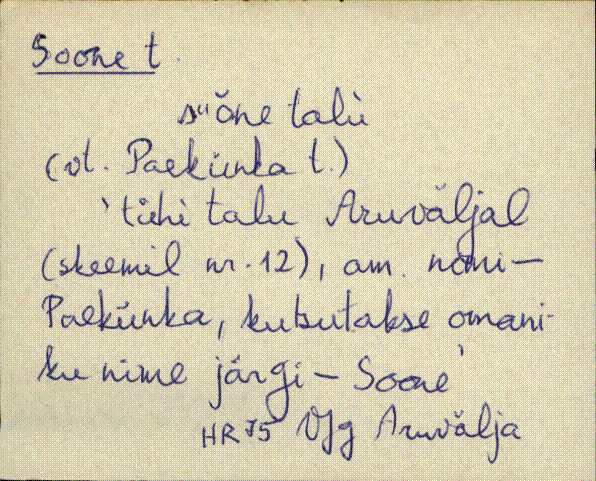 Soone t.
suõne talu
(vt. Paekünka t.)
'tühi talu Aruväljal
(skeemil nr. 12), am. nimi –
Paekünka, kutsutakse omani-
ku nime järgi – Soone
HR 75 VJg Aruvälja